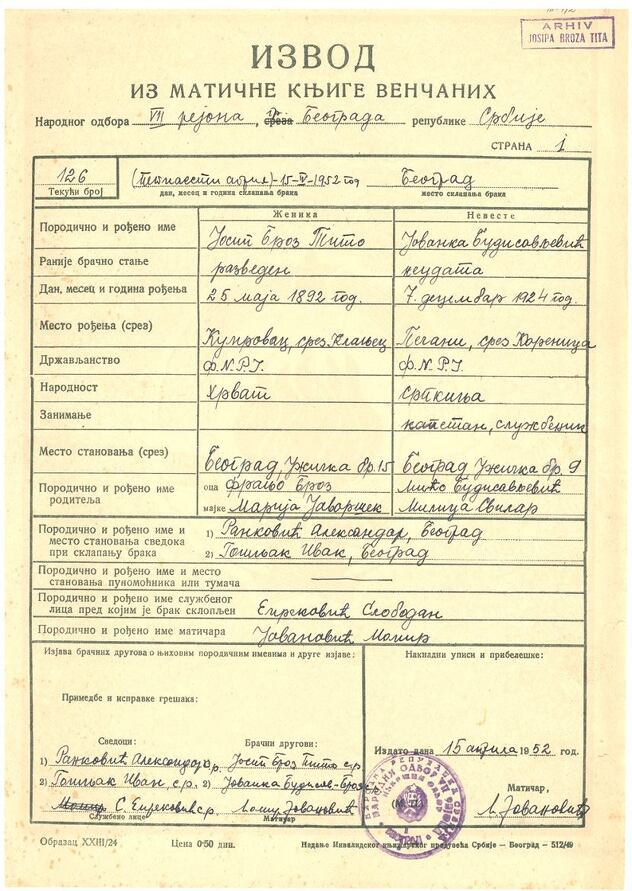 ARHIV
JOSIPA BROZA TITA
ИЗВОД
ИЗ МАТИЧНЕ КЊИГЕ ВЕНЧАНИХ
Народног одбора VII рејона, среза гр. Београда републике Србије
СТРАНА 1
126 (петнаести април)-15-IV-1952 год Београд
Текући број дан, месец и година склапања брака место склапања брака
Женика Невесте
Породично и рођено име Јосип Броз Тито Јованка Будисављевић
Раније брачно стање разведен неудата
Дан, месец и година рођења 25 маја 1892 год. 7. децембар 1924 год.
Место рођења (срез) Кумровац, срез Клањец Пећани, срез Кореница
Држављанство Ф.Н.Р.Ј. Ф.Н.Р.Ј.
Народност Хрват српкиња
Занимање капетан, службеник
Место становања (срез) Београд, Ужичка бр. 15 Београд Ужичка бр. 9
Породично и рођено име родитеља оца Фрањо Броз Мићо Будисављевић
мајке Марија Јаворшек Милица Свилар
Породично и рођено име и место становања сведока при склапању брака 1) Ранковић Александар, Београд
2) Гошњак Иван, Београд
Породично и рођено име и место становања пуномоћника или тумача
Породично и рођено име службеног лица пред којим је брак склопљен Слободан
Породично и рођено име матичара Јовановић Момир
Изјава брачних другова о њиховим породичним именима и друге изјаве:
Накнадни уписи и прибелешке:
Примедбе и исправке грешака:
Сведоци: Брачни другови:
1) Ранковић Александар с.р. 1) Јосип Броз Тито с.р.
2) Гошњак Иван с.р. 2) Јованка Будисав-Броз с.р.
Момир Јовановић
Службено лице Матичар
Издато дана 15 априла 1952 год.
(М. П.)
Матичар,
М. Јовановић
БЕОГРАД
Образац XXIII/24 Цена 0·50 дин. Издање Инвалидског књижарског предузећа Србије – Београд – 512/49